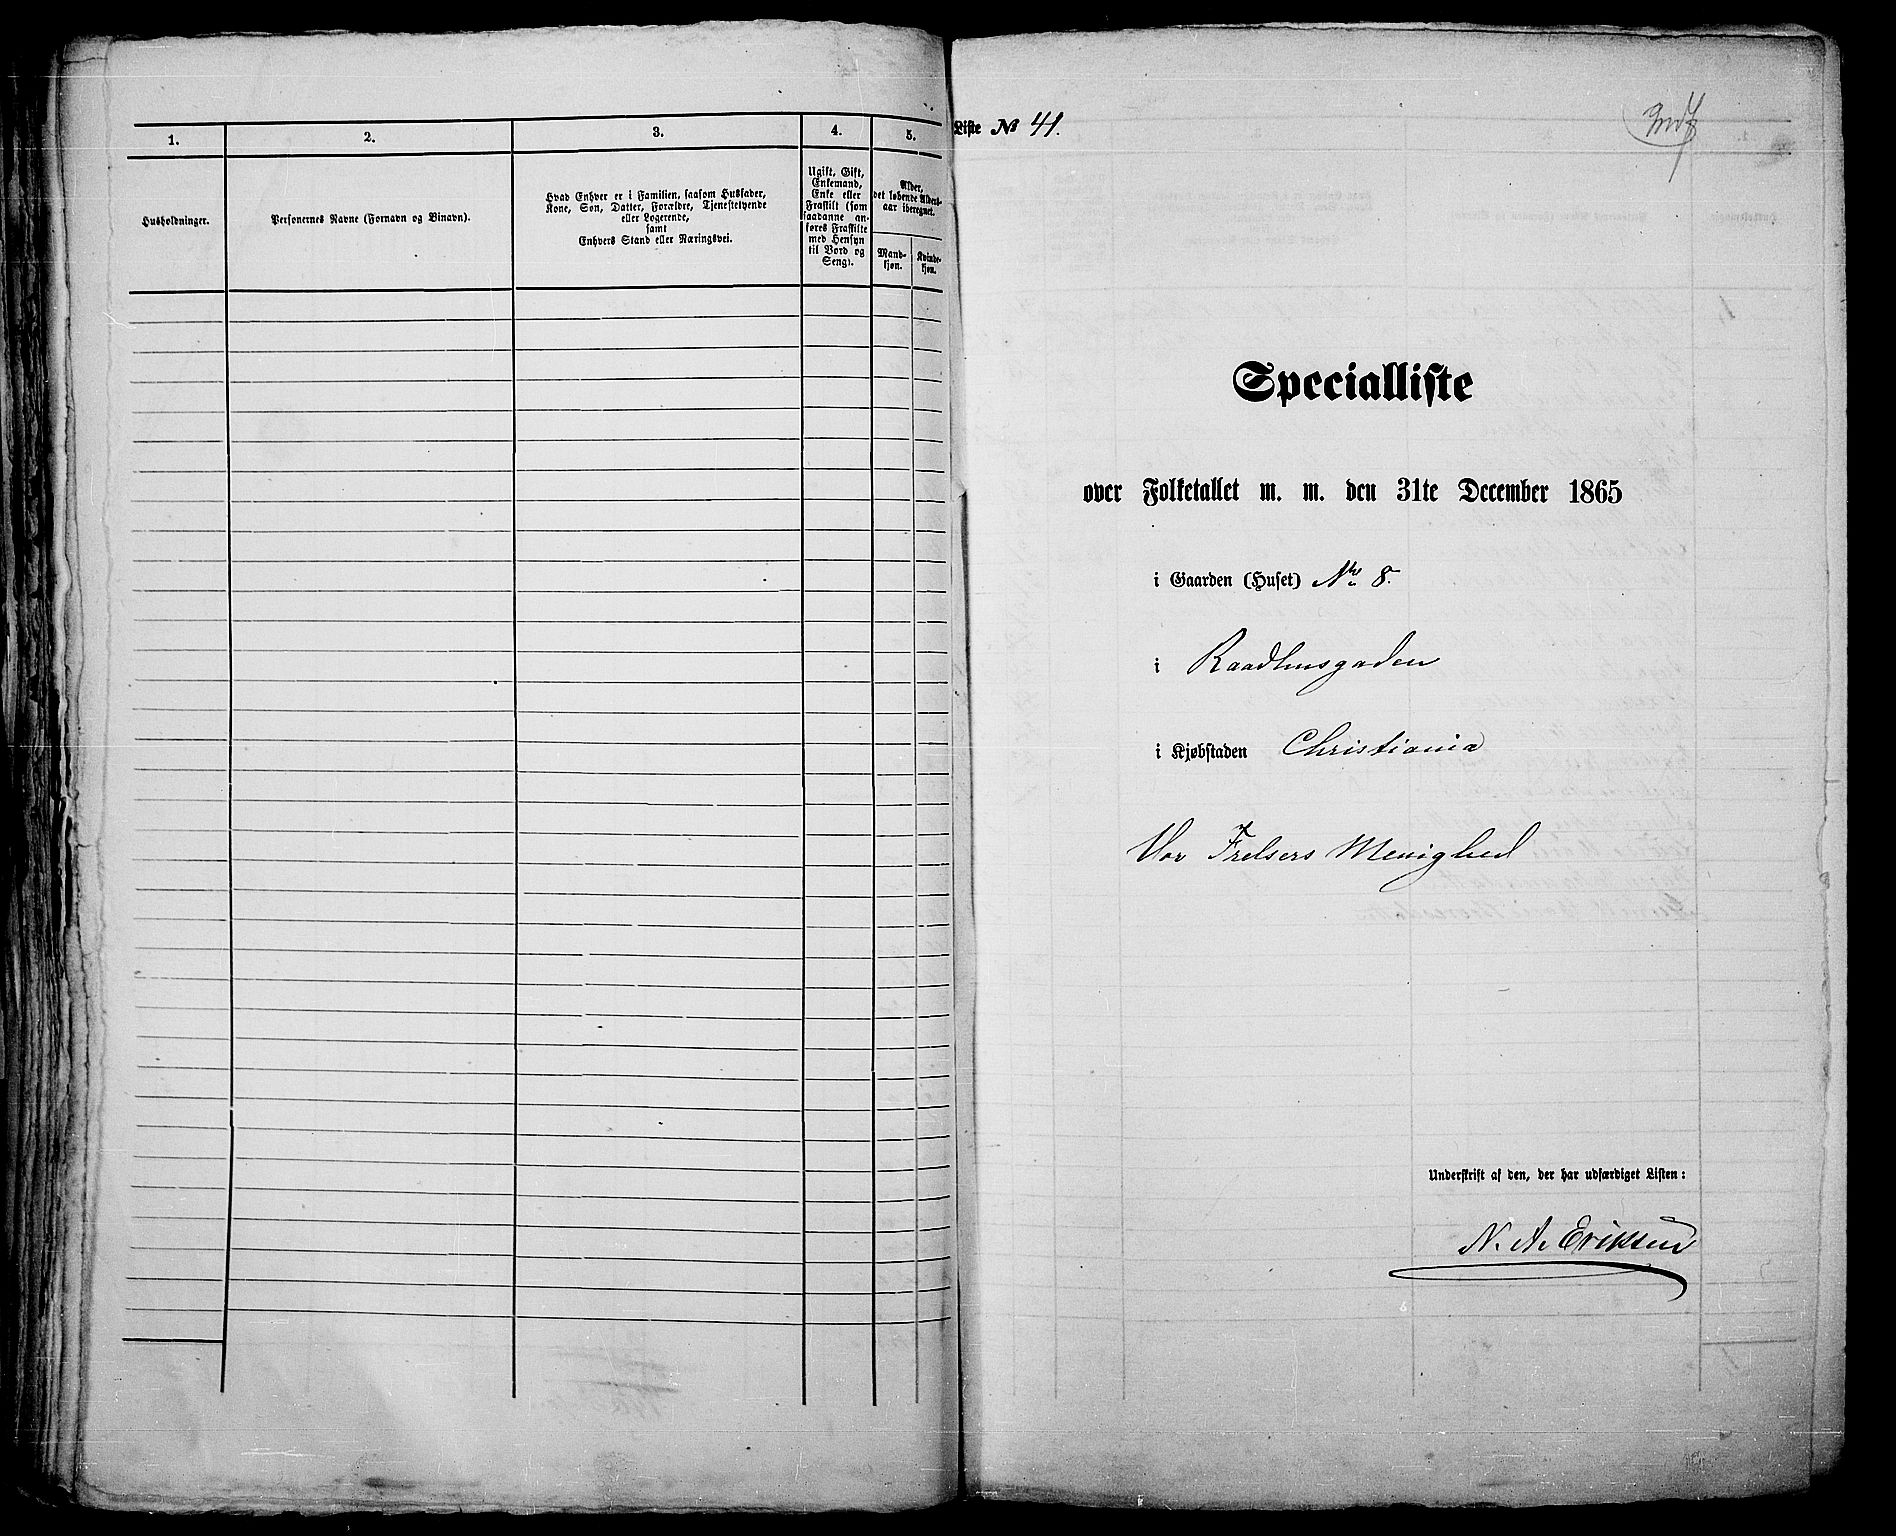 1.
2.
3.
4.
5.
Husholdninger.
Personernes Navne (Fornavn og Binavn).
Hvad Enhver er i Familien, saasom Husfader,
Kone, Søn, Datter, Forældre, Tjenestetyende
eller Logerende,
samt
Enhvers Stand eller Næringsvei.
Ugift, Gift,
Enkemand,
Enke eller
Fraskilt (som
saadanne an-
føres Fraskilte
med Hensyn
til Bord og
Seng).
Alder,
det løbende Alders-
aar iberegnet.
Mand-
kjøn.
Kvinde-
kjøn.
Liste № 41.
Specialliste
over Folketallet m. m. den 31te December 1865
i Gaarden (Huset) No. 8.
i Raadhusgaden
i Kjøbstaden Christiania
Vor Frelsers Menighed
Underskrift af den, der har udfærdiget Listen:
N. A. Eriksen